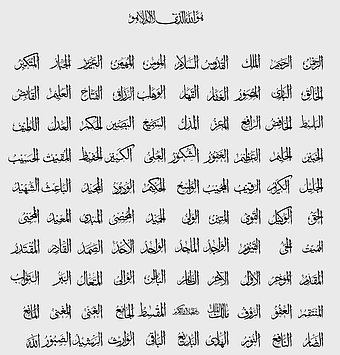 هو الله الذي لا إله إلا هو
الرحمن الرحيم الملك القدوس السلام المؤمن المهيمن العزيز الجبار المتكبر
الخالق البارئ المصور الغفار القهار الوهاب الرزاق الفتاح العليم القابض
الباسط الخافض الرافع المعز المذل السميع البصير الحكم العدل اللطيف
الخبير الحليم العظيم الغفور الشكور العلي الكبير الحفيظ المقيت الحسيب
الجليل الكريم الرقيب المجيب الواسع الحكيم الودود المجيد الباعث الشهيد
الحق الوكيل القوي المتين الولي الحميد المحصي المبدئ المعيد المحيي
المميت الحي القيوم الواجد الماجد الواحد الأحد الصمد القادر المقتدر
المقدم المؤخر الأول الآخر الظاهر الباطن الوالي المتعال البر التواب
المنتقم العفو الرؤوف مالك الملك ذو الجلال والإكرام المقسط الجامع الغني المغني المانع
الضار النافع النور الهادي البديع الباقي الوارث الرشيد الصبور الله